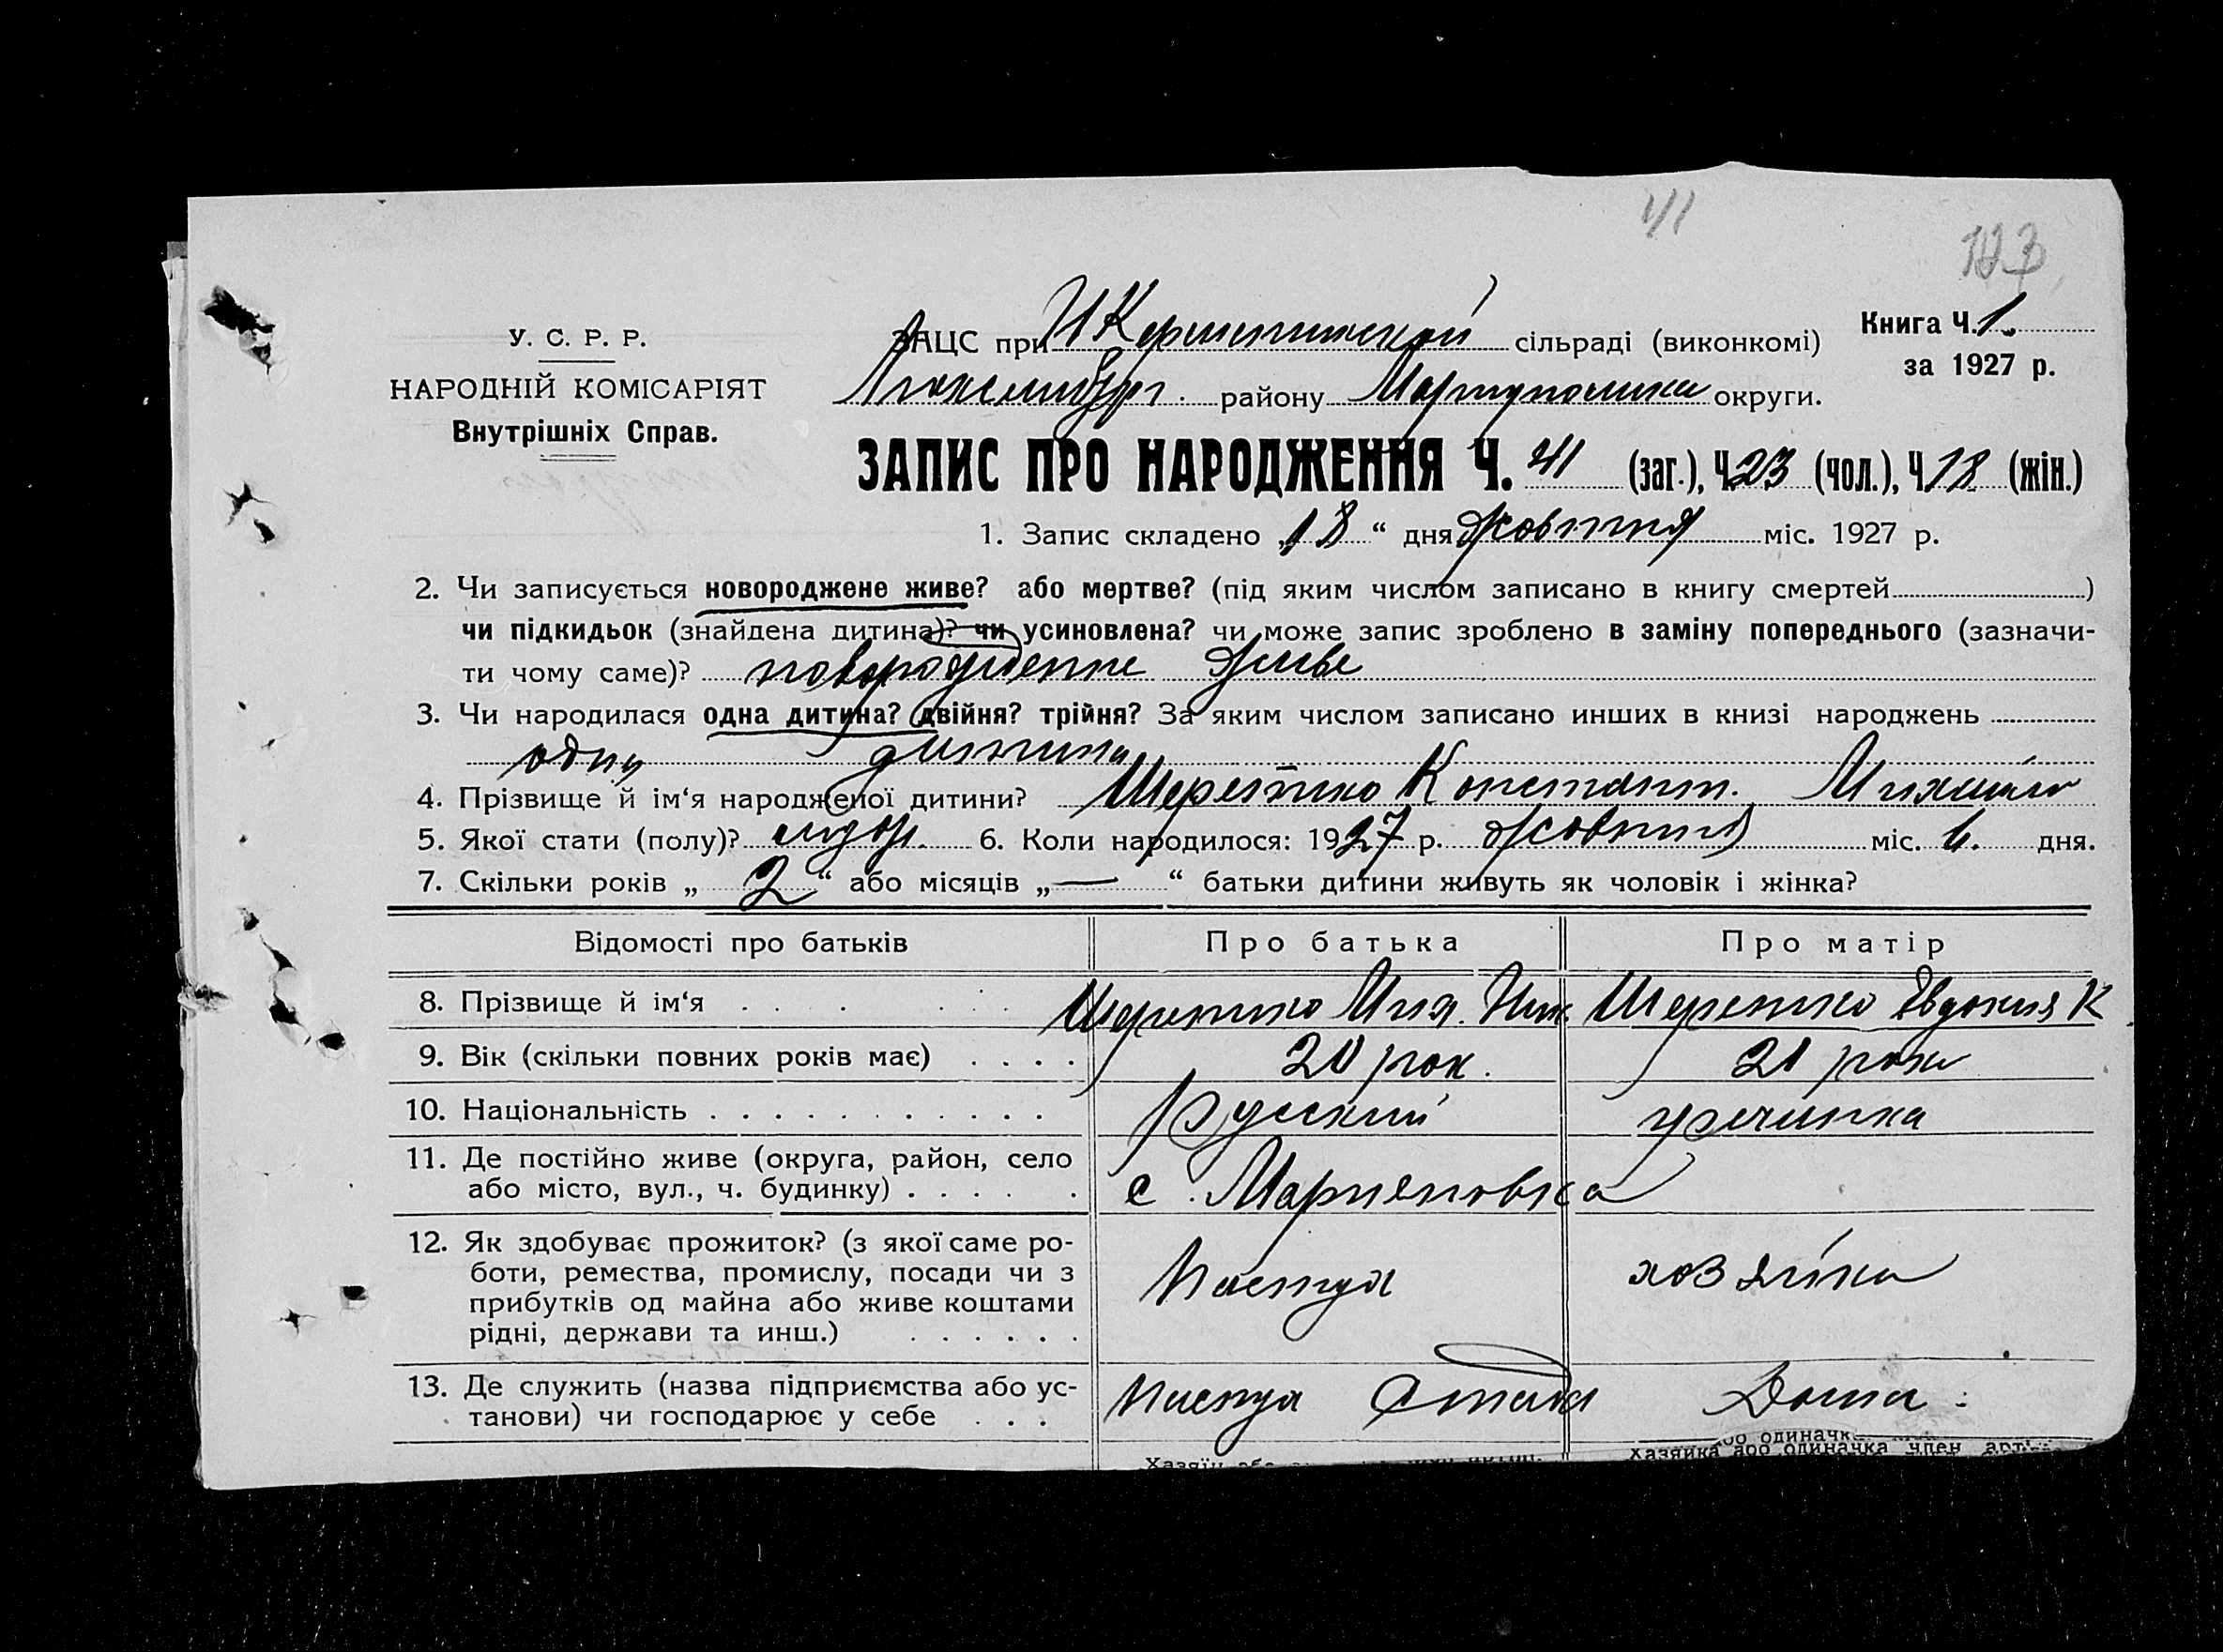 41
123
У. С. Р. Р.
НАРОДНІЙ КОМІСАРІЯТ
Внутрішніх Справ.
ЗАЦС при сільраді (виконкомі)
району округи.
Книга Ч. 1
за 1927 р.
ЗАПИС ПРО НАРОДЖЕННЯ Ч. 41 (заг.), Ч. 23 (чол.), Ч. 18 (жін.)
1. Запис складено „18“ дня жовтня міс. 1927 р.
2. Чи записується новороджене живе? або мертве? (під яким числом записано в книгу смертей )
чи підкидьок (знайдена дитина)? чи усиновлена? чи може запис зроблено в заміну попереднього (зазначи-
ти чому саме)? живе
3. Чи народилася одна дитина? двійня? трійня? За яким числом записано инших в книзі народжень
одна дитина
4. Прізвище й ім‘я народженої дитини? Констант.
5. Якої стати (полу)? 6. Коли народилося: 1927 р. жовтня міс. 6. дня.
7. Скільки років „ 2 “ або місяців „ — “ батьки дитини живуть як чоловік і жінка?
Відомості про батьків Про батька Про матір
8. Прізвище й ім‘я . . . . . . Шеретко Мих. Ник. Шеретко Евдокия К
9. Вік (скільки повних років має) . . . . 20 рок. 21 рок
10. Національність . . . . . . . . . . . Русский гречинка
11. Де постійно живе (округа, район, село
або місто, вул., ч. будинку) . . . . . с. Марияновка
12. Як здобуває прожиток? (з якої саме ро-
боти, ремества, промислу, посади чи з
прибутків од майна або живе коштами
рідні, держави та инш.) . . . . . . Пастух хозяйка
13. Де служить (назва підприємства або ус-
танови) чи господарює у себе . . . Пастух Дома
Хазяйка або одиначка член арті